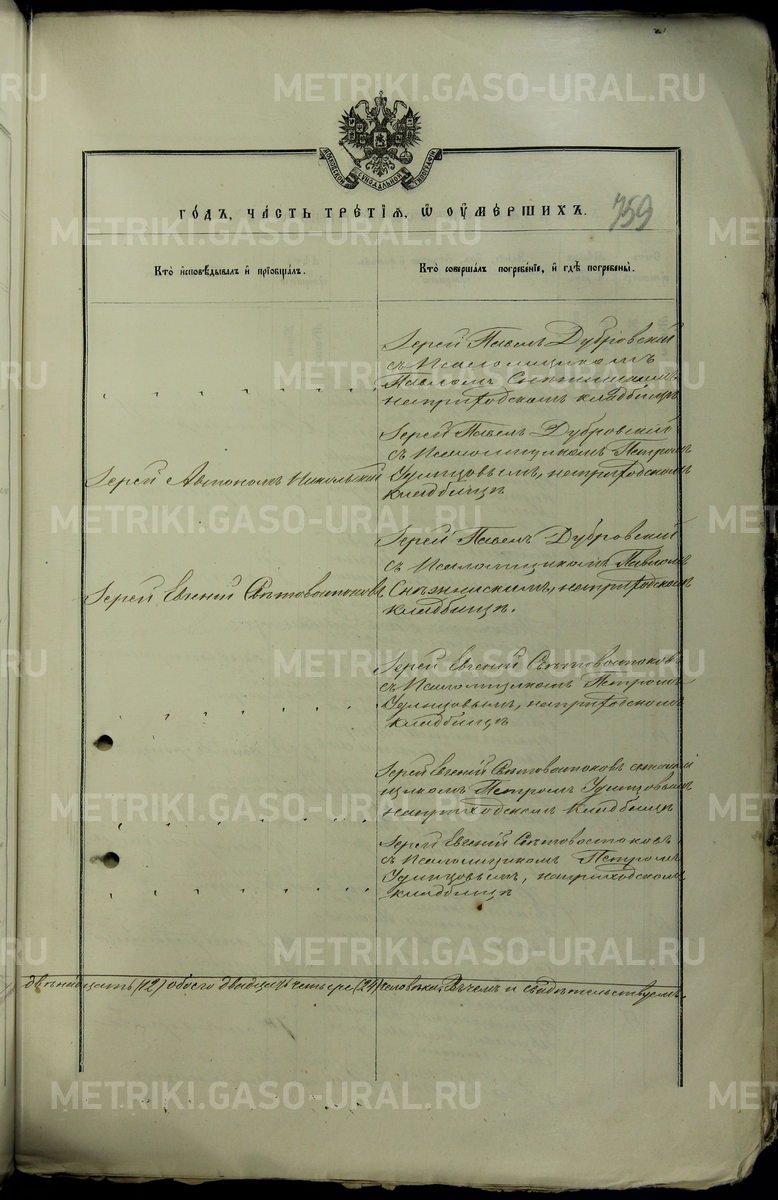 МОСКОВСКОЙ СѴНОДАЛЬНОЙ ТИПОГРАФІИ
ГО́ДЪ, ЧА́СТЬ ТРЕ́ТІѦ, Ѡ ОУ҆МЕ́РШИХЪ.
759
Кто̀ и҆сповѣ́дывалъ и҆ прїобща́лъ.
Кто̀ соверша́лъ погребе́нїе, и҆ гдѣ̀ погребены̀.
Іерей Павелъ Дубровскій
съ Псаломщикомъ
Павломъ Снѣжницкимъ
на приходскомъ кладбищѣ
Іерей Автономъ Никольскій
Іерей Павелъ Дубровскій
съ Псаломщикомъ Петромъ
Удинцовымъ, на приходскомъ
кладбищѣ
Іерей Евгеній Свѣтовостоковъ
Іерей Павелъ Дубровскій
съ Псаломщикомъ Павломъ
Снѣжницкимъ, на приходскомъ
кладбищѣ.
Іерей Евгеній Свѣтовостоковъ
съ Псаломщикомъ Петромъ
Удинцовымъ, на приходскомъ
кладбищѣ
Іерей Евгеній Свѣтовостоковъ
щикомъ Петромъ Удинцовымъ
на приходскомъ кладбищѣ
Іерей Евгеній Свѣтовостоковъ
съ Псаломщикомъ Петромъ
Удинцовымъ, на приходскомъ
кладбищѣ
двѣнадцать (12) обоего двадцать четыре (24) человѣка. Въ чемъ и свидѣтельствуемъ.
METRIKI.GASO-URAL.RU